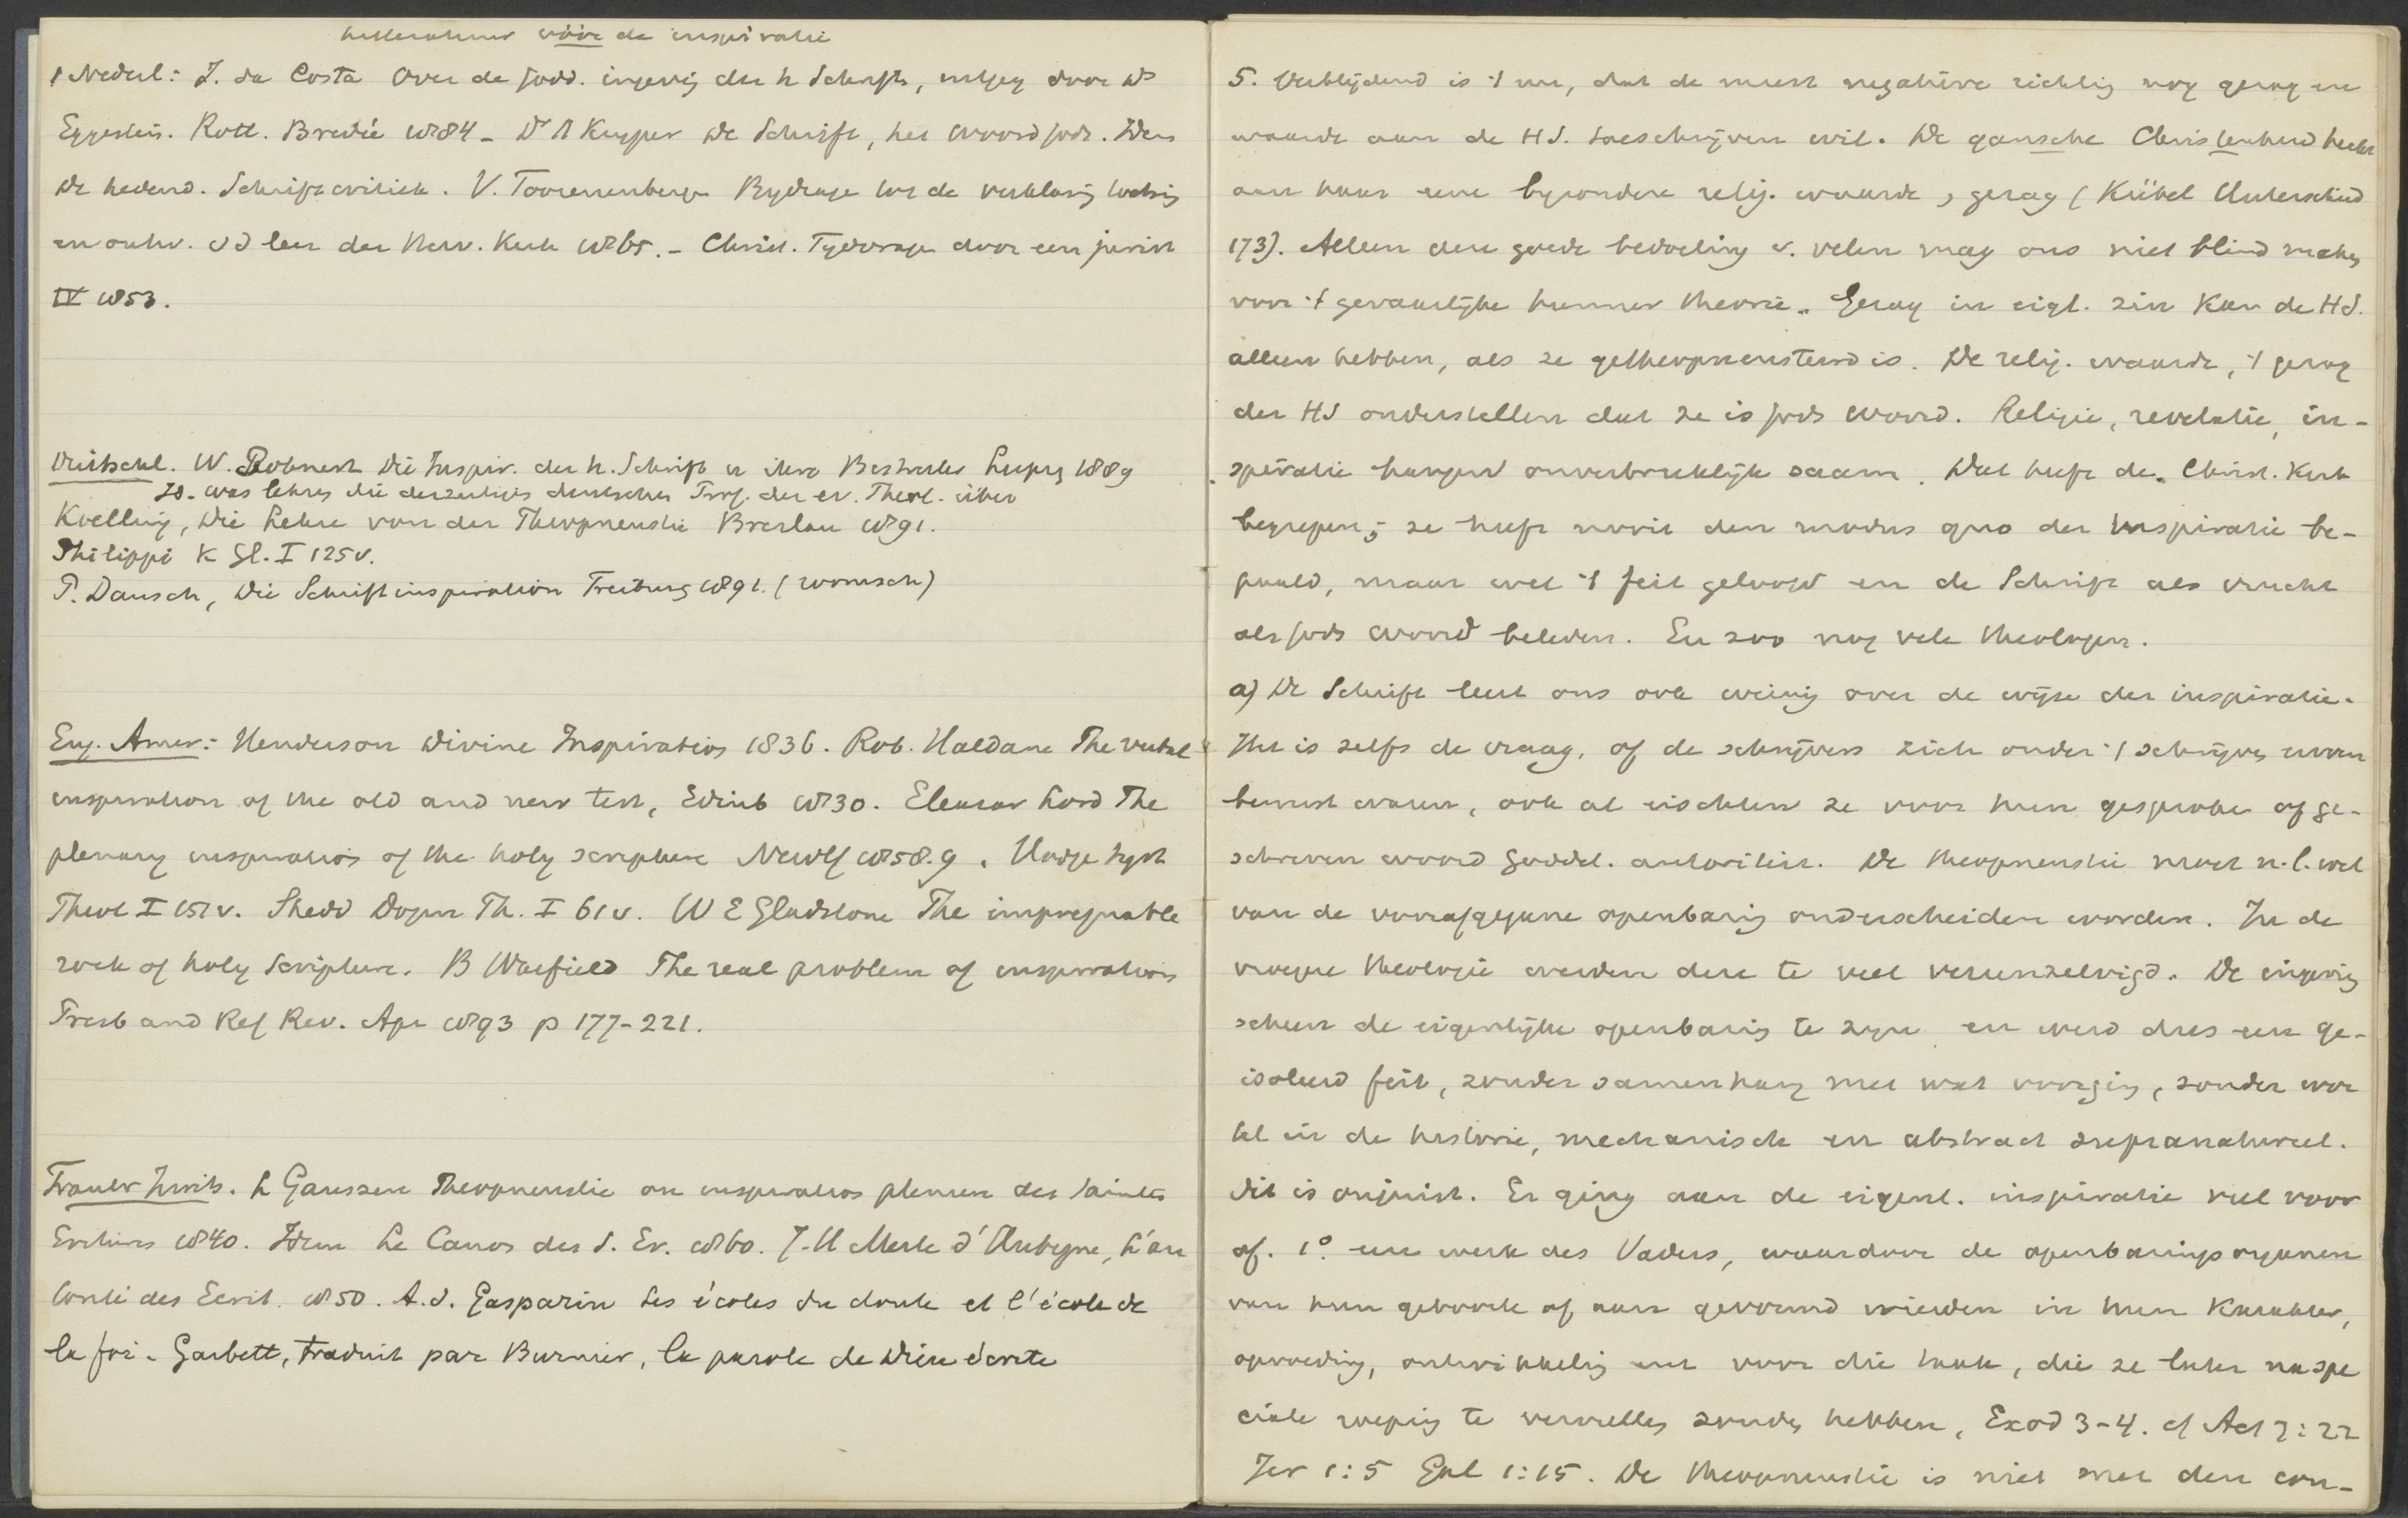 litteratuur vóór de inspiratie
Nederl: I. da Costa Over de godd. ingeving der h Schrift, uitgeg door Ds
Eggestein. Rott. Bredée 1884 - Dr A Kuyper De Schrift, het woord gods. Idem
De hedend. Schriftcritiek. V. Toorenenbergen Bijdrage tot de verklaring toetsing
en ontw. v d leer der Herv. Kerk 1865. - Christ. Tijdvragen door een jurist
IV 1853.
Duitschl. W. Rohnert Die Inspir. der h. Schrift u ihre Bestreiter Leipzig 1889
Id. was lehren die derzeitigen deutschen Prof. der ev. Theol. über
Koelling, Die Lehre von der Theopneustie Breslau 1891.
Philippi K Gl. I 125 v.
P. Dausch, Die Schriftinspiration Freiburg 1891. (roomsch)
Eng. Amer: Henderson Divine Inspiration 1836. Rob. Haldane The verbal
inspiration of the old and new test, Edinb 1830. Eleazar Lord The
plenary inspiration of the holy scripture Newy 1858.9. Hodge Syst
Theol I 151 v. Shedd Dogm Th. I 61 v. W E Gladstone The impregnable
rock of holy Scripture. B Warfield The real problem of inspiration
Presb and Ref Rev. Apr 1893 p 177-221.
Frankr Zwits. L Gaussen Theopneustie ou inspiration pleniere des saintes
Ecritures 1840. Idem Le Canon des S. Ec. 1860. J.H Merle d'Aubigne, L'au
torité des Ecrit. 1850. A. d. Gasparin Les écoles du doute et l'école de
la foi - Garbett, traduit par Burnier, la parole de Dieu écrite
5. Verblijdend is 't nu, dat de meest negatieve richting nog gezag en
waarde aan de HS. toeschrijven wil. De gansche Christenheid hecht
aan haar eene bijzondere relig. waarde, gezag (Kübel Unterschied
173). Alleen deze goede bedoeling v. velen mag ons niet blind maken
voor 't gevaarlijke hunner theorie. Gezag in eigl. zin kan de HS.
alleen hebben, als ze getheopneusteerd is. De relig. waarde, 't gezag
der HS onderstellen dat ze is gods woord. Religie, revelatie, in-
spiratie hangen onverbreeklijk saam. Dat heeft de Christ. Kerk
begrepen; ze heeft nooit den modus quo der inspiratie be-
paald, maar wel 't feit geloofd en de Schrift als vrucht
als gods woord beleden. En zoo nog vele theologen.
a) De Schrift leert ons ook weinig over de wijze der inspiratie.
Het is zelfs de vraag, of de schrijvers zich onder 't schrijven ervan
bewust waren, ook al eischten ze voor hun gesproken of ge-
schreven woord goddel. autoriteit. De theopneustie moet n.l. wel
van de voorafgegane openbaring onderscheiden worden. In de
vroegere theologie werden deze te veel vereenzelvigd. De ingeving
scheen de eigenlijke openbaring te zijn en werd dus een ge-
isoleerd feit, zonder samenhang met wat voorging, zonder wor
tel in de historie, mechanisch en abstract supranatureel.
Dit is onjuist. Er ging aan de eigenl. inspiratie veel voor
af. 1o. een werk des Vaders, waardoor de openbaringsorganen
van hun geboorte af aan gevormd wierden in hun karakter,
opvoeding, ontwikkeling enz voor die taak, die ze later na spe
ciale roeping te vervullen zouden hebben, Exod 3-4. cf Act 7:22
Jer 1:5 Gal 1:15. De theopneustie is niet met den con-